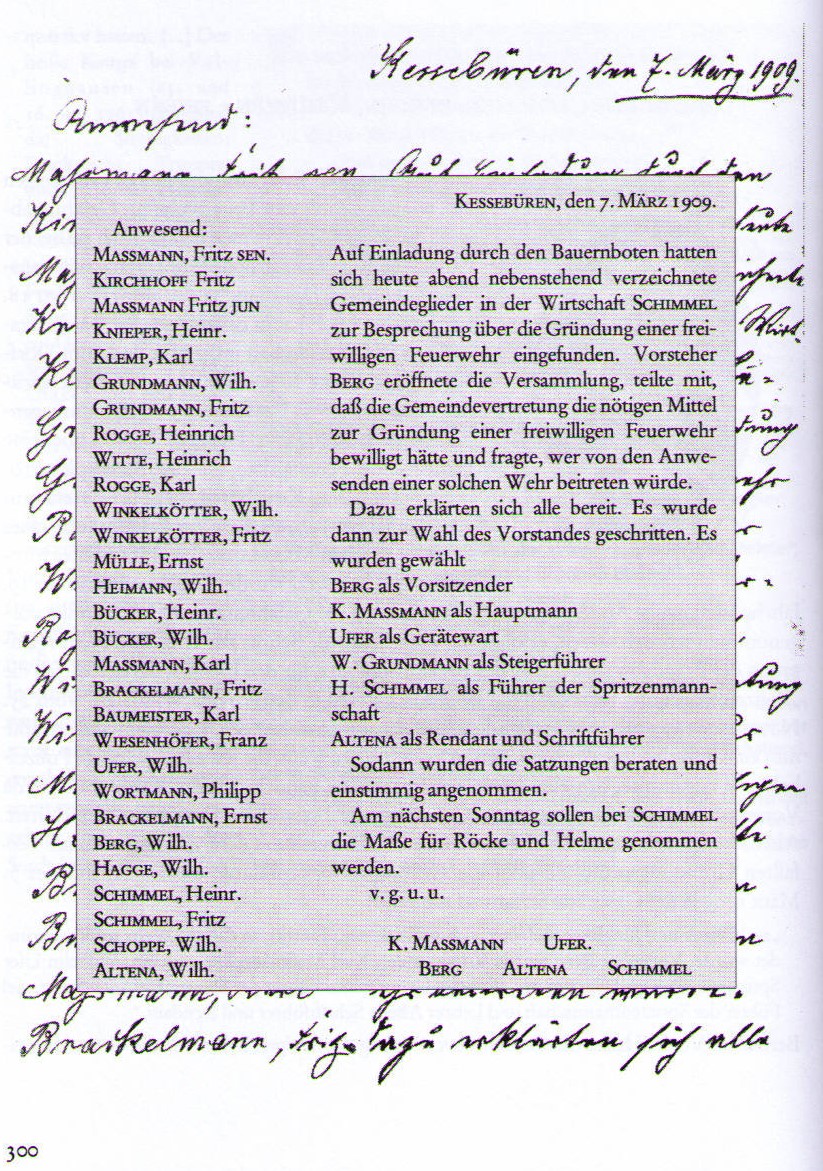 Kessebüren, den 7. März 1909.
Anwesend:
Massmann, Fritz sen. Auf Einladung durch den
KESSEBÜREN, den 7. MÄRZ 1909.
Anwesend:
MASSMANN, Fritz SEN.
KIRCHHOFF Fritz
MASSMANN Fritz JUN
KNIEPER, Heinr.
KLEMP, Karl
GRUNDMANN, Wilh.
GRUNDMANN, Fritz
ROGGE, Heinrich
WITTE, Heinrich
ROGGE, Karl
WINKELKÖTTER, Wilh.
WINKELKÖTTER, Fritz
MÜLLE, Ernst
HEIMANN, Wilh.
BÜCKER, Heinr.
BÜCKER, Wilh.
MASSMANN, Karl
BRACKELMANN, Fritz
BAUMEISTER, Karl
WIESENHÖFER, Franz
UFER, Wilh.
WORTMANN, Philipp
BRACKELMANN, Ernst
BERG, Wilh.
HAGGE, Wilh.
SCHIMMEL, Heinr.
SCHIMMEL, Fritz
SCHOPPE, Wilh.
ALTENA, Wilh.
Auf Einladung durch den Bauernboten hatten
sich heute abend nebenstehend verzeichnete
Gemeindeglieder in der Wirtschaft SCHIMMEL
zur Besprechung über die Gründung einer frei-
willigen Feuerwehr eingefunden. Vorsteher
BERG eröffnete die Versammlung, teilte mit,
daß die Gemeindevertretung die nötigen Mittel
zur Gründung einer freiwilligen Feuerwehr
bewilligt hätte und fragte, wer von den Anwe-
senden einer solchen Wehr beitreten würde.
Dazu erklärten sich alle bereit. Es wurde
dann zur Wahl des Vorstandes geschritten. Es
wurden gewählt
BERG als Vorsitzender
K. MASSMANN als Hauptmann
UFER als Gerätewart
W. GRUNDMANN als Steigerführer
H. SCHIMMEL als Führer der Spritzenmann-
schaft
ALTENA als Rendant und Schriftführer
Sodann wurden die Satzungen beraten und
einstimmig angenommen.
Am nächsten Sonntag sollen bei SCHIMMEL
die Maße für Röcke und Helme genommen
werden.
v. g. u. u.
K. MASSMANN UFER.
BERG ALTENA SCHIMMEL
Brackelmann, Fritz. Dazu erklärten sich alle
300